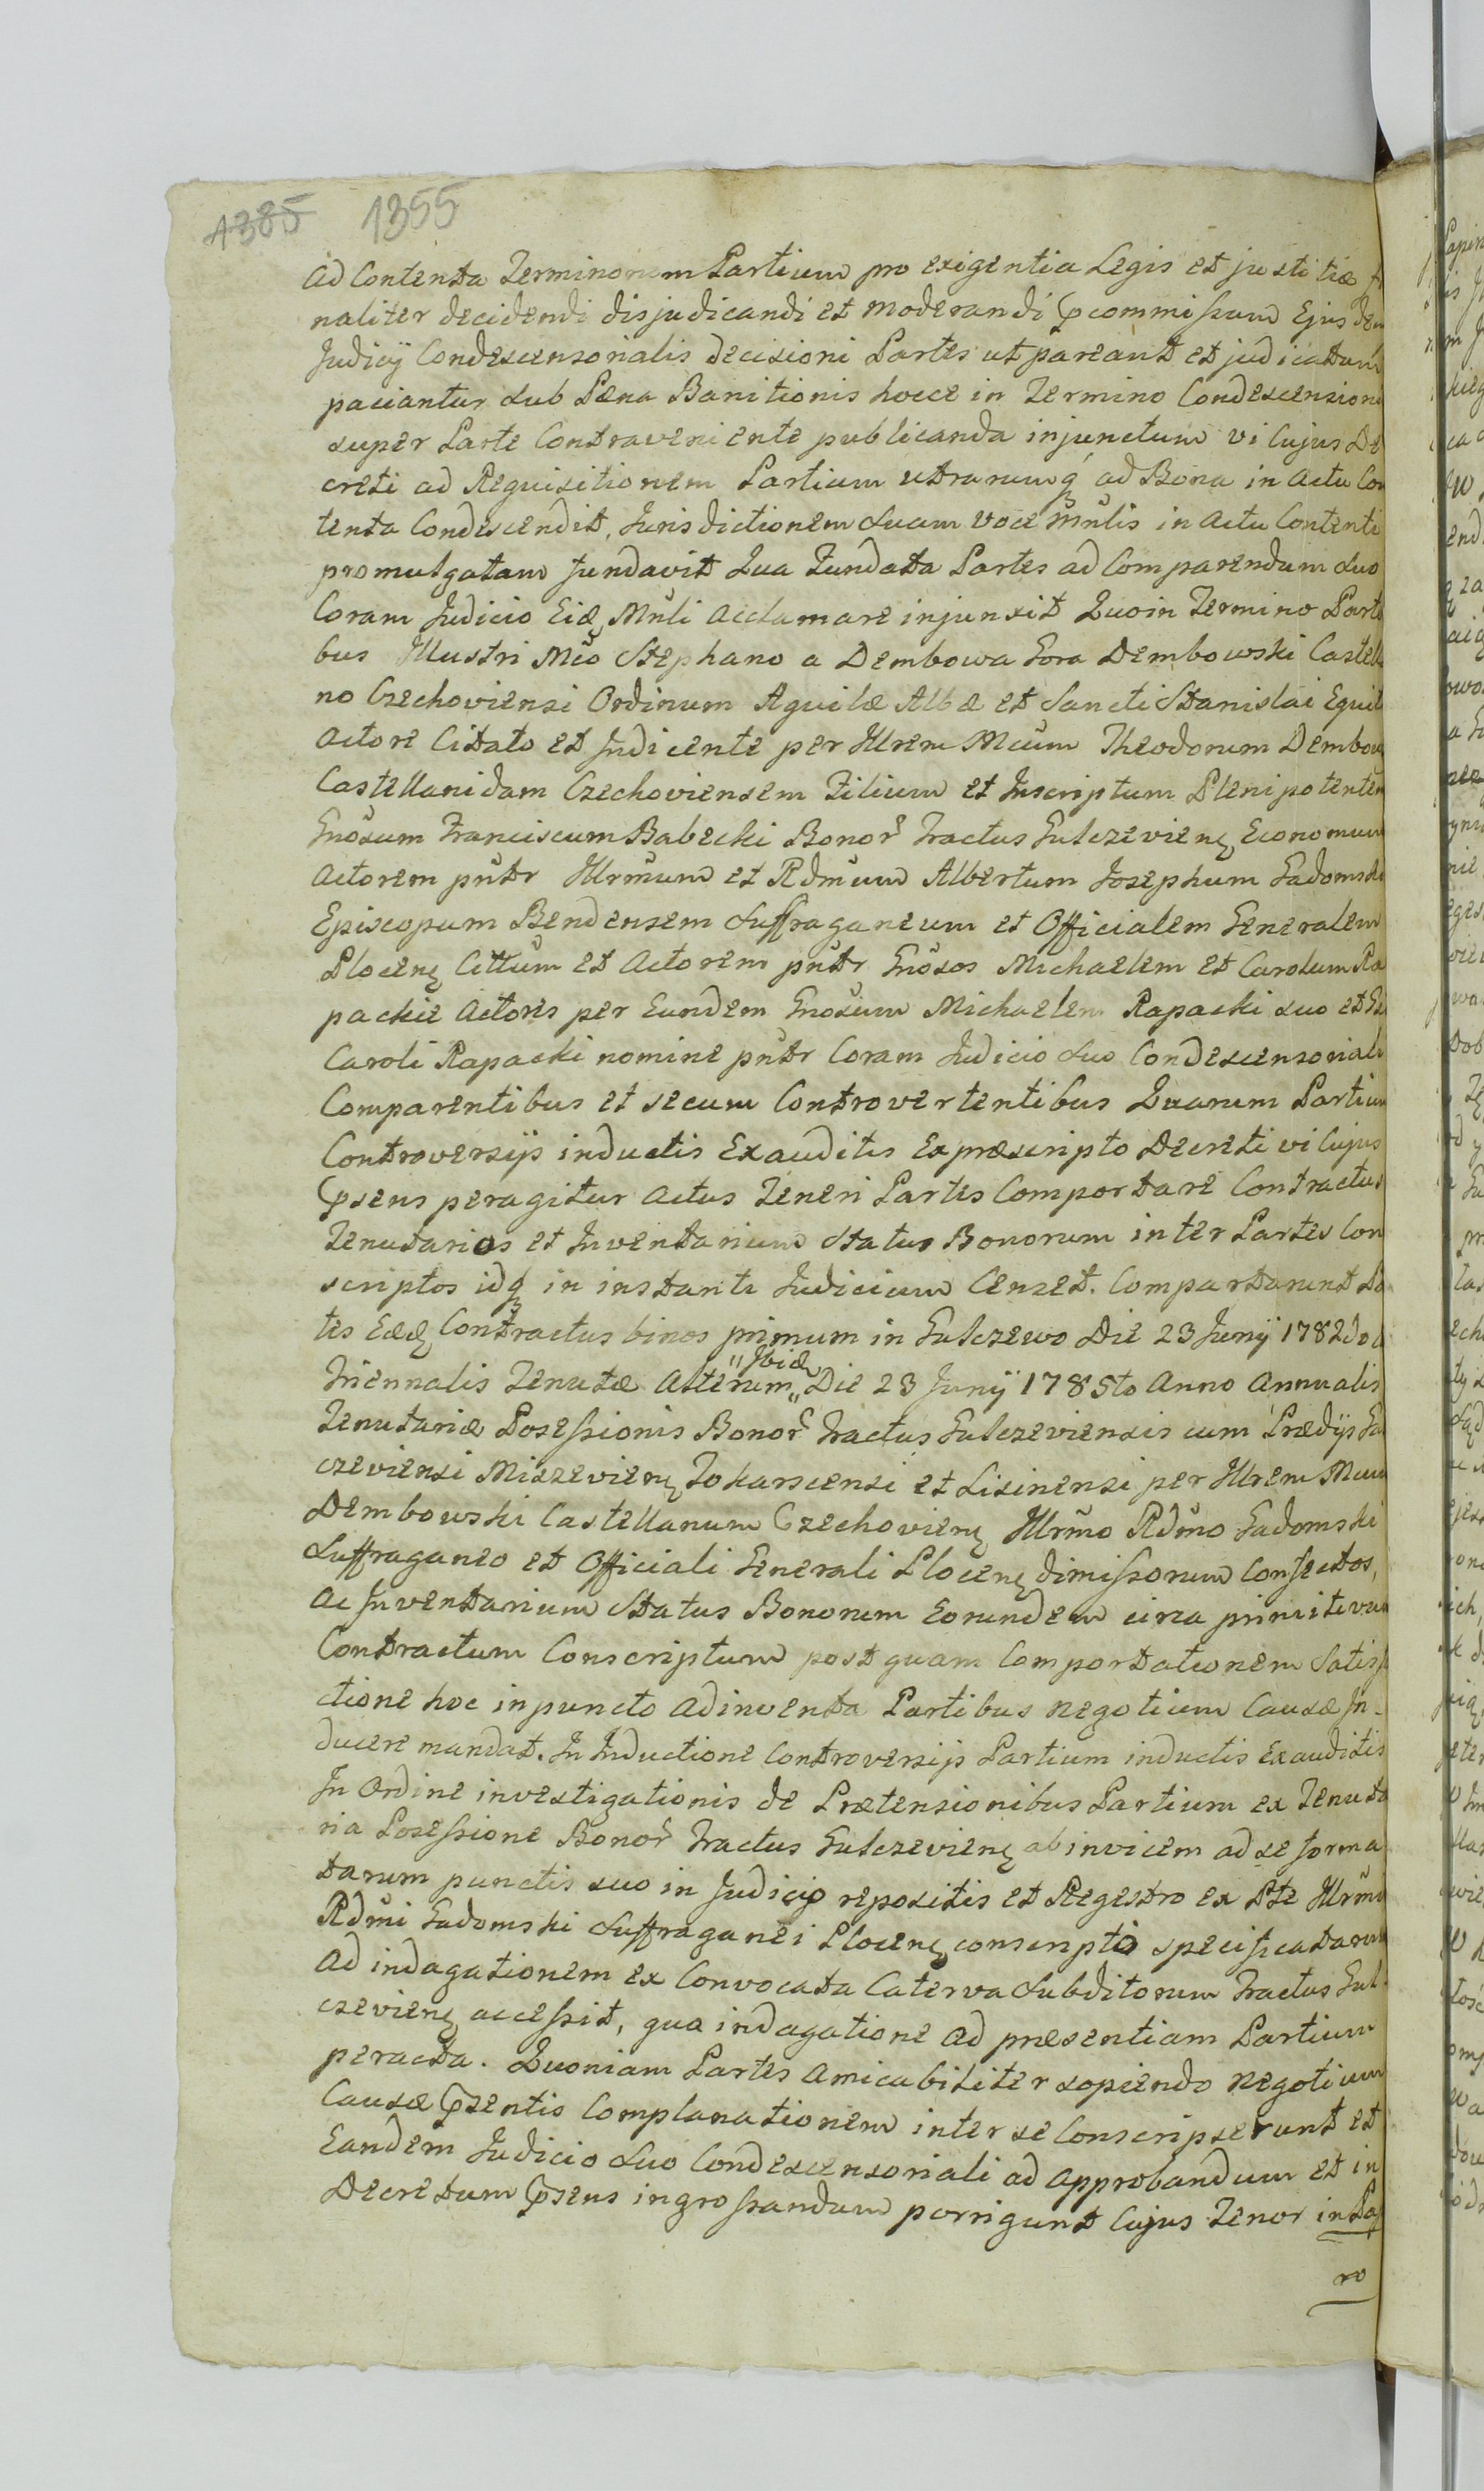 1385 1355
ad Contenta Terminorum Partium pro exigentia Legis et justitiæ fi
naliter decidendi disjudicandi et moderandi pcommissum Ejusdem
Judicÿ Condescensorialis decisioni Partes ut pareant et judicatum
paciantur sub Pæna Banitionis hocce in Termino Condescensionis
super Parte Contraveniente publicanda injunctum vi Cujus De
creti ad Requisitionem Partium utrarumq ad Bona in Actu Con
tenta Condescendit, Jurisdictionem suam voce Mnlis in Actu Contenti
promulgatam fundavit Qua Fundata Partes ad Comparendum suo
Coram Judicio Eid Mnli acclamare injunxit Quoin Termino Parti
bus Illustri Mco Stephano a Dembowa Gora Dembowski Castella
no Czechoviensi Ordinum Aquilæ Albæ et Sancti Stanislai Equite
Actore Citato et Judicente per Illrem Mcum Theodorum Dembow
Castellanidam Czechoviensem Filium et Inscriptum Plenipotentem
Gnosum Franciscum Babecki Bonor Tractus Gulczevien Economum
Actorem pntr Illrmum et Rdmum Albertum Josephum Gadomski
Episcopum Bendensem Suffraganeum et Officialem Generalem
Plocen Cittum et Actorem pntr Gnosos Michaelem et Carolum Ra
packie Actores per Eundem Gnosum Michaelem Rapacki suo et Gsi
Caroli Rapacki nomine pntr Coram Judicio suo Condescensoriali
Comparentibus et secum Controvertentibus Quarum Partium
Controversijs inductis Exauditis Expræscripto Decreti vi Cujus
Psens peragitur Actus Teneri Partes Comportare Contractus
Tenutarios et Inventarium Status Bonorum inter Partes Con
scriptos idq in instanti Judicium Censet. Comportarunt Pa
tes Eæd Contractus binos primum in Gulczewo Die 23 Junÿ 1782do a
"Ibid
Triennalis Tenutæ Alterum,, Die 23 Junÿ 1785to Anno Annualis
Tenutariæ Posessionis Bonor Tractus Gulczeviensis cum Prædÿs Gul
czeviensi Miszevien Tokarscensi et Lisinensi per Illrem Mcum
Dembowski Castellanum Czechovien Illrmo Rdmo Gadomski
Suffraganeo et Officiali Generali Plocen dimissorum Confectos,
ac Inventarium Status Bonorum Eorundem circa primitivum
Contractum Conscriptum post quam Comportationem Satisfa
ctione hoc in puncto adinventa Partibus negotium Causæ In-
ducere mandat. In Inductione Controversijs Partium inductis Exauditis
In Ordine investigationis de Prætensionibus Partium ex Tenuta
ria Posessione Bonor Tractus Gulczevien ab invicem ad se forma
tarum punctis suo in Judicio repositis et Regestro ex Pte Illrmi
Rdmi Gadomski Suffraganei Plocen conscripto specificatarum
Ad indagationem ex Convocata Caterva Subditorum Tractus Gul-
czevien accessit, qua indagatione ad præsentiam Partium
peracta. Quoniam Partes amicabiliter sopiendo negotium
Causæ Psentis Complanationem inter se Conscripserunt et
Eandem Judicio suo Condescensoriali ad approbandum et in
Decretum Psens ingrossandum porrigunt Cujus Tenor in Pa
ro